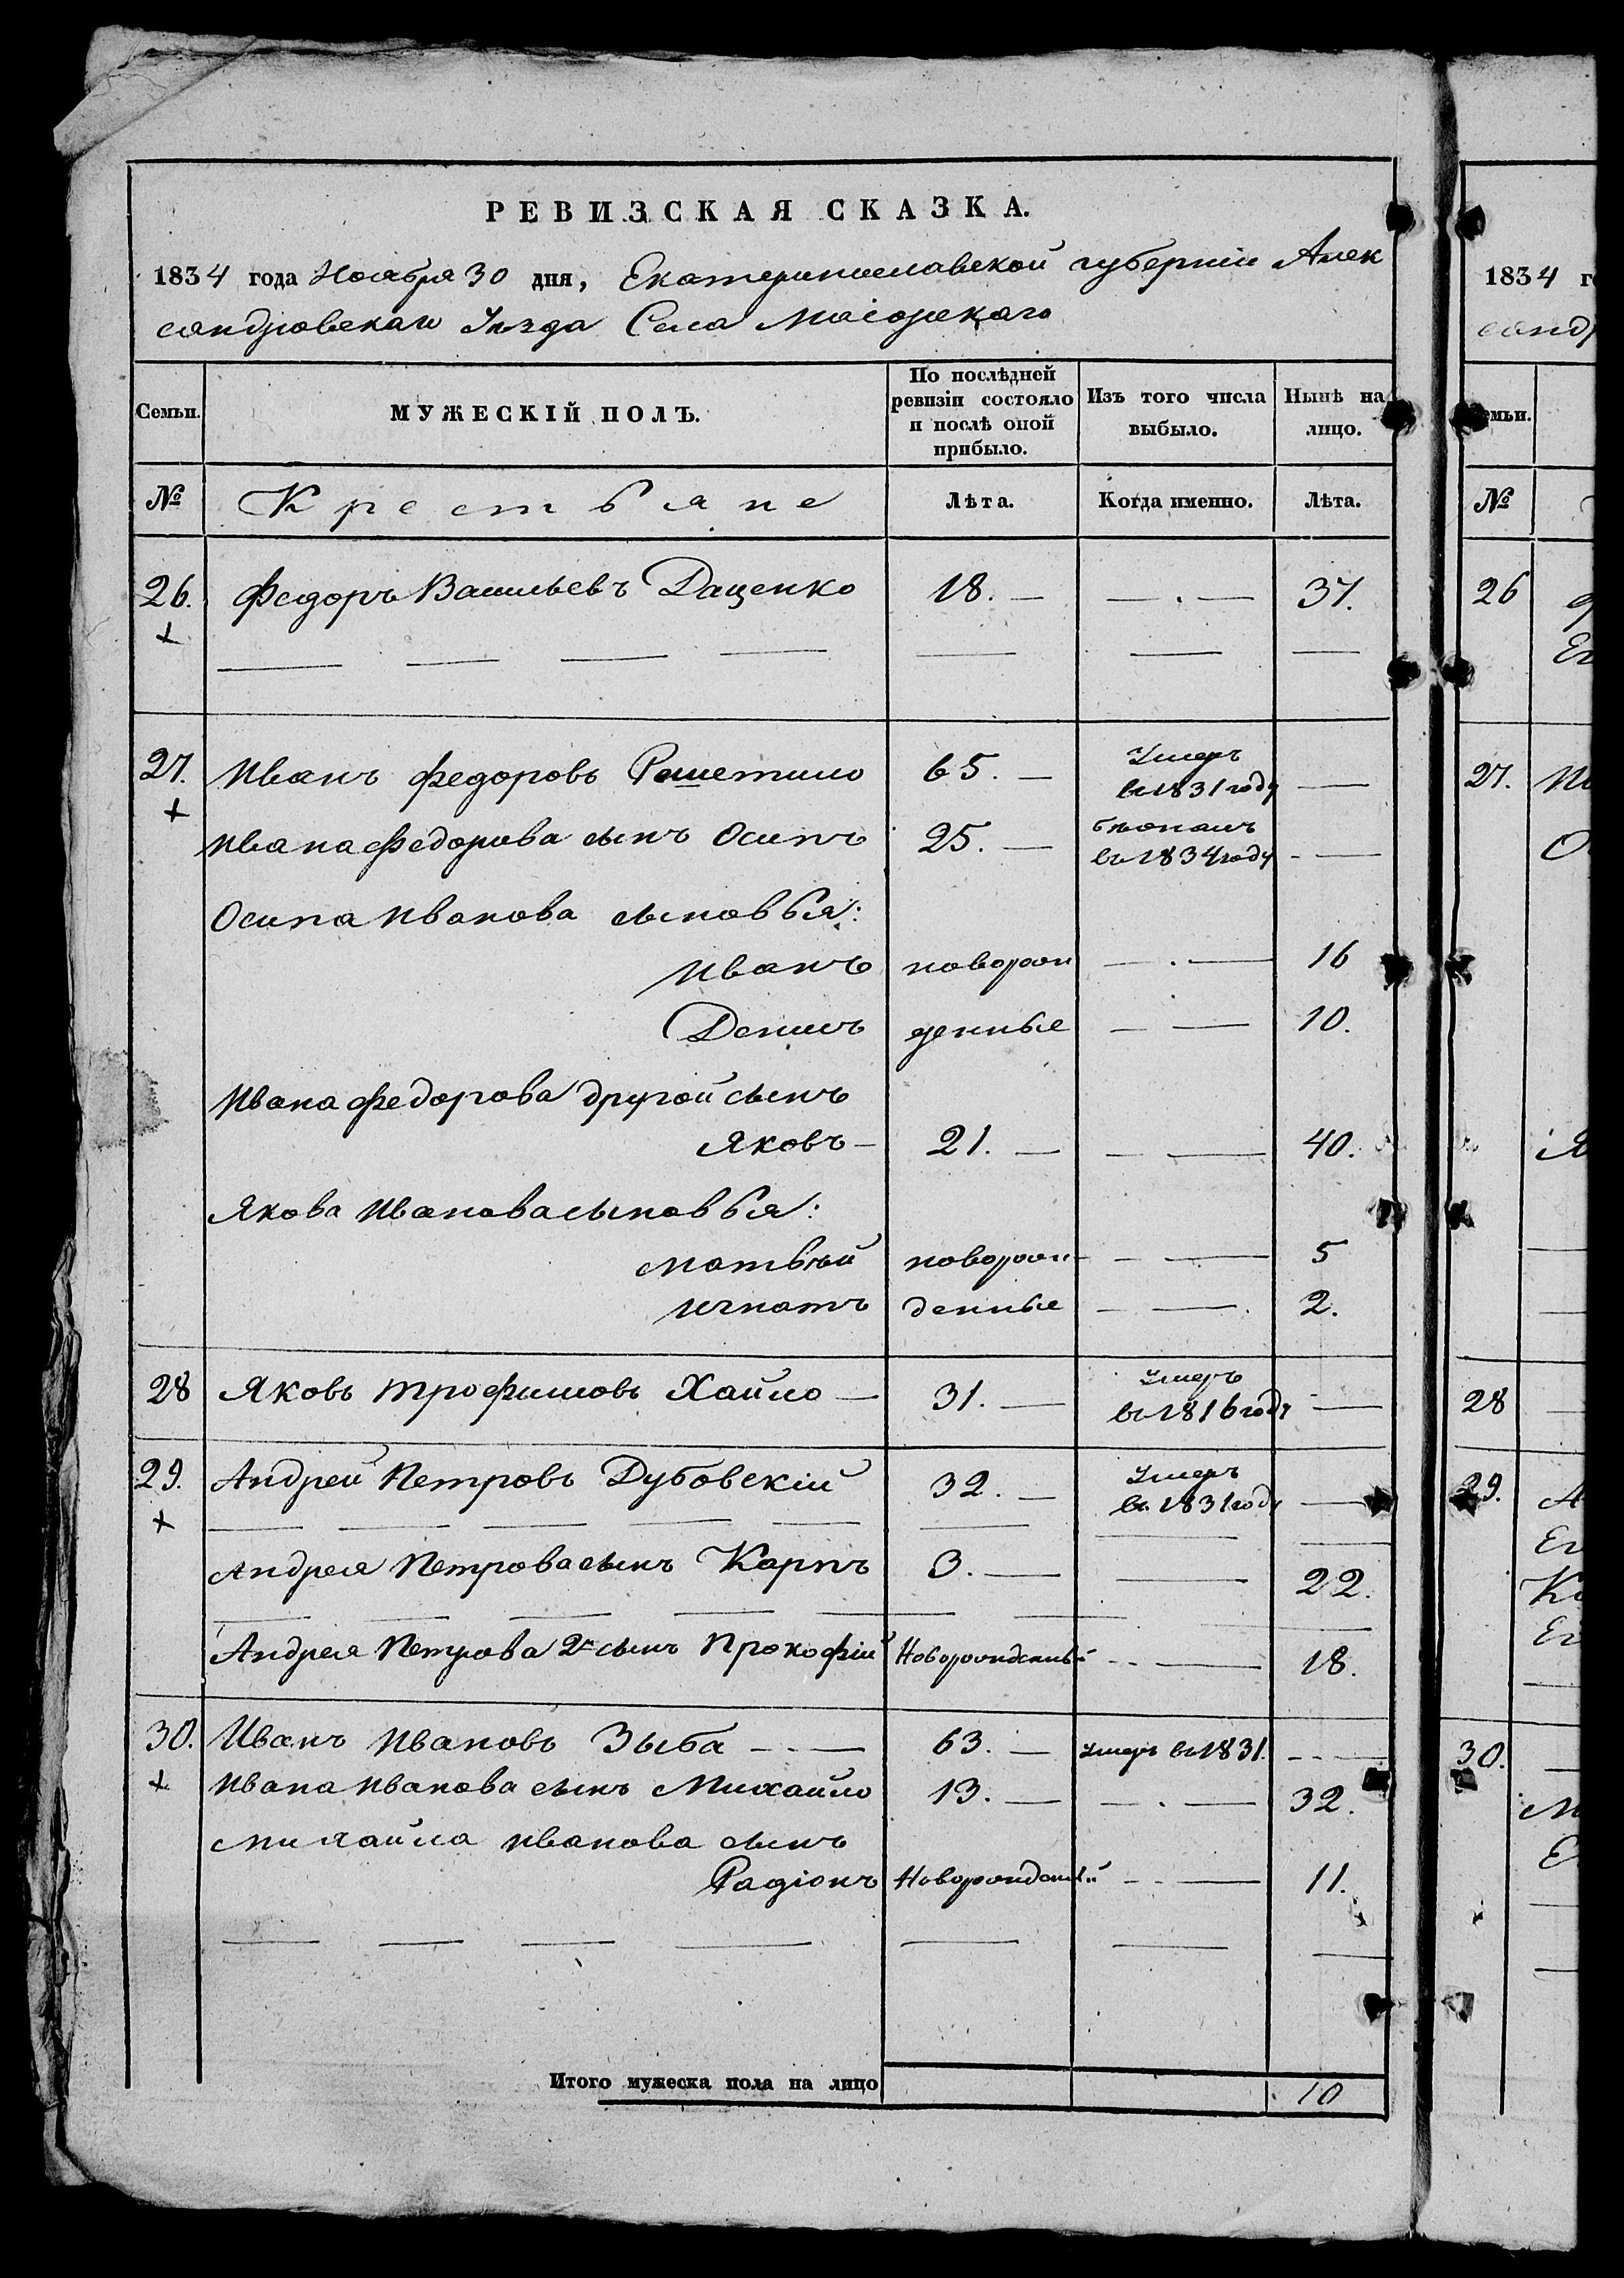 РЕВИЗСКАЯ СКАЗКА.
1834 года Ноября 30 дня, Екатеринославской губернии Алек
сандровскаго Уѣзда Села Маіорскаго
Семьи. МУЖЕСКІЙ ПОЛЪ. По послѣдней ревизіи состояло и послѣ оной прибыло. Изъ того числа выбыло. Нынѣ на лицо.
№ Крестьяне Лѣта. Когда именно. Лѣта.
26. Федоръ Васильевъ Даценко 18. — — . — 37.
+
27. Иванъ Федоровъ Решетило 65. — Умеръ въ 1831 году —
+
Ивана Федорова сынъ Осипъ 25. — въ 1834 году - —
Осипа Иванова сыновья:
Иванъ новорож — . — 16
Денисъ денные — — 10.
Ивана Федорова другой сынъ
Яковъ — 21. — — — 40.
Якова Иванова сыновья:
Матвѣй новорож- — — 5
Игнатъ денные — — 2.
28 Яковъ Трофимовъ Хайло — 31. — Умеръ въ 1816 году —
29. Андрей Петровъ Дубовскій 32. — Умеръ въ 1831 году —
+
Андрея Петрова сынъ Карпъ 3. — — 22.
Андрея Петрова 2й сынъ Прокофій Новорожденный - — 18.
30. Иванъ Ивановъ Зыба — — 63. — умеръ въ 1831. - —
+ Ивана Иванова сынъ Михайло 13. — — . — 32.
Михайла Иванова сынъ
Радіонъ Новорожденный - — 11.
Итого мужеска пола на лицо 10
1834 г
санд
емьи.
№
26
Ег
27.
28
29.
Ег
30.